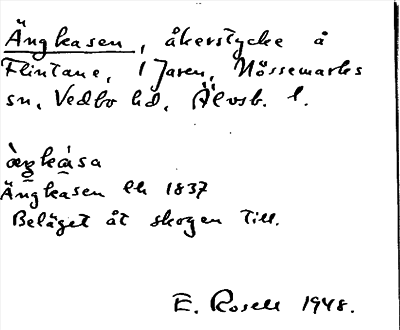 Ängkasen, åkerstycke å
Flintane, 1 Jaren, Nössemarks
sn, Vedbo hd, Älvsb. l.
ka̱sa
Ängkasen lh 1837
Beläget åt skogen till.
E. Rosell 1948.